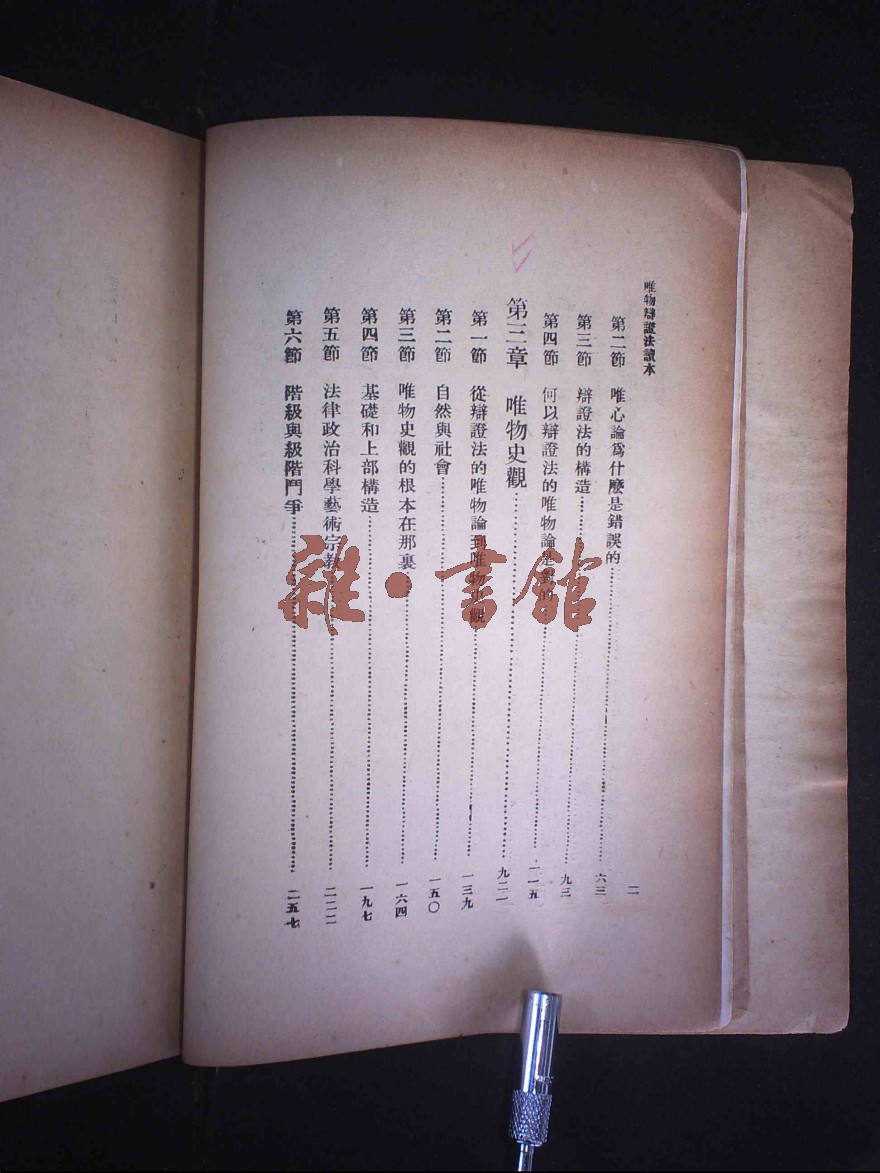 唯物辯證法讀本
二
第二節 唯心論爲什麽是錯誤的……六三
第三節 辯證法的構造……九三
第四節 何以辯證法的唯物論是對的……一一五
第三章 唯物史觀……
第一節 從辯證法的唯物論到唯物史觀……一三九
第二節 自然與社會……一五〇
第三節 唯物史觀的根本在那裏……一六四
第四節 基礎和上部構造……一九七
第五節 法律政治科學藝術宗教……二二二
第六節 階級與級階鬥爭……二五七
雜·書館